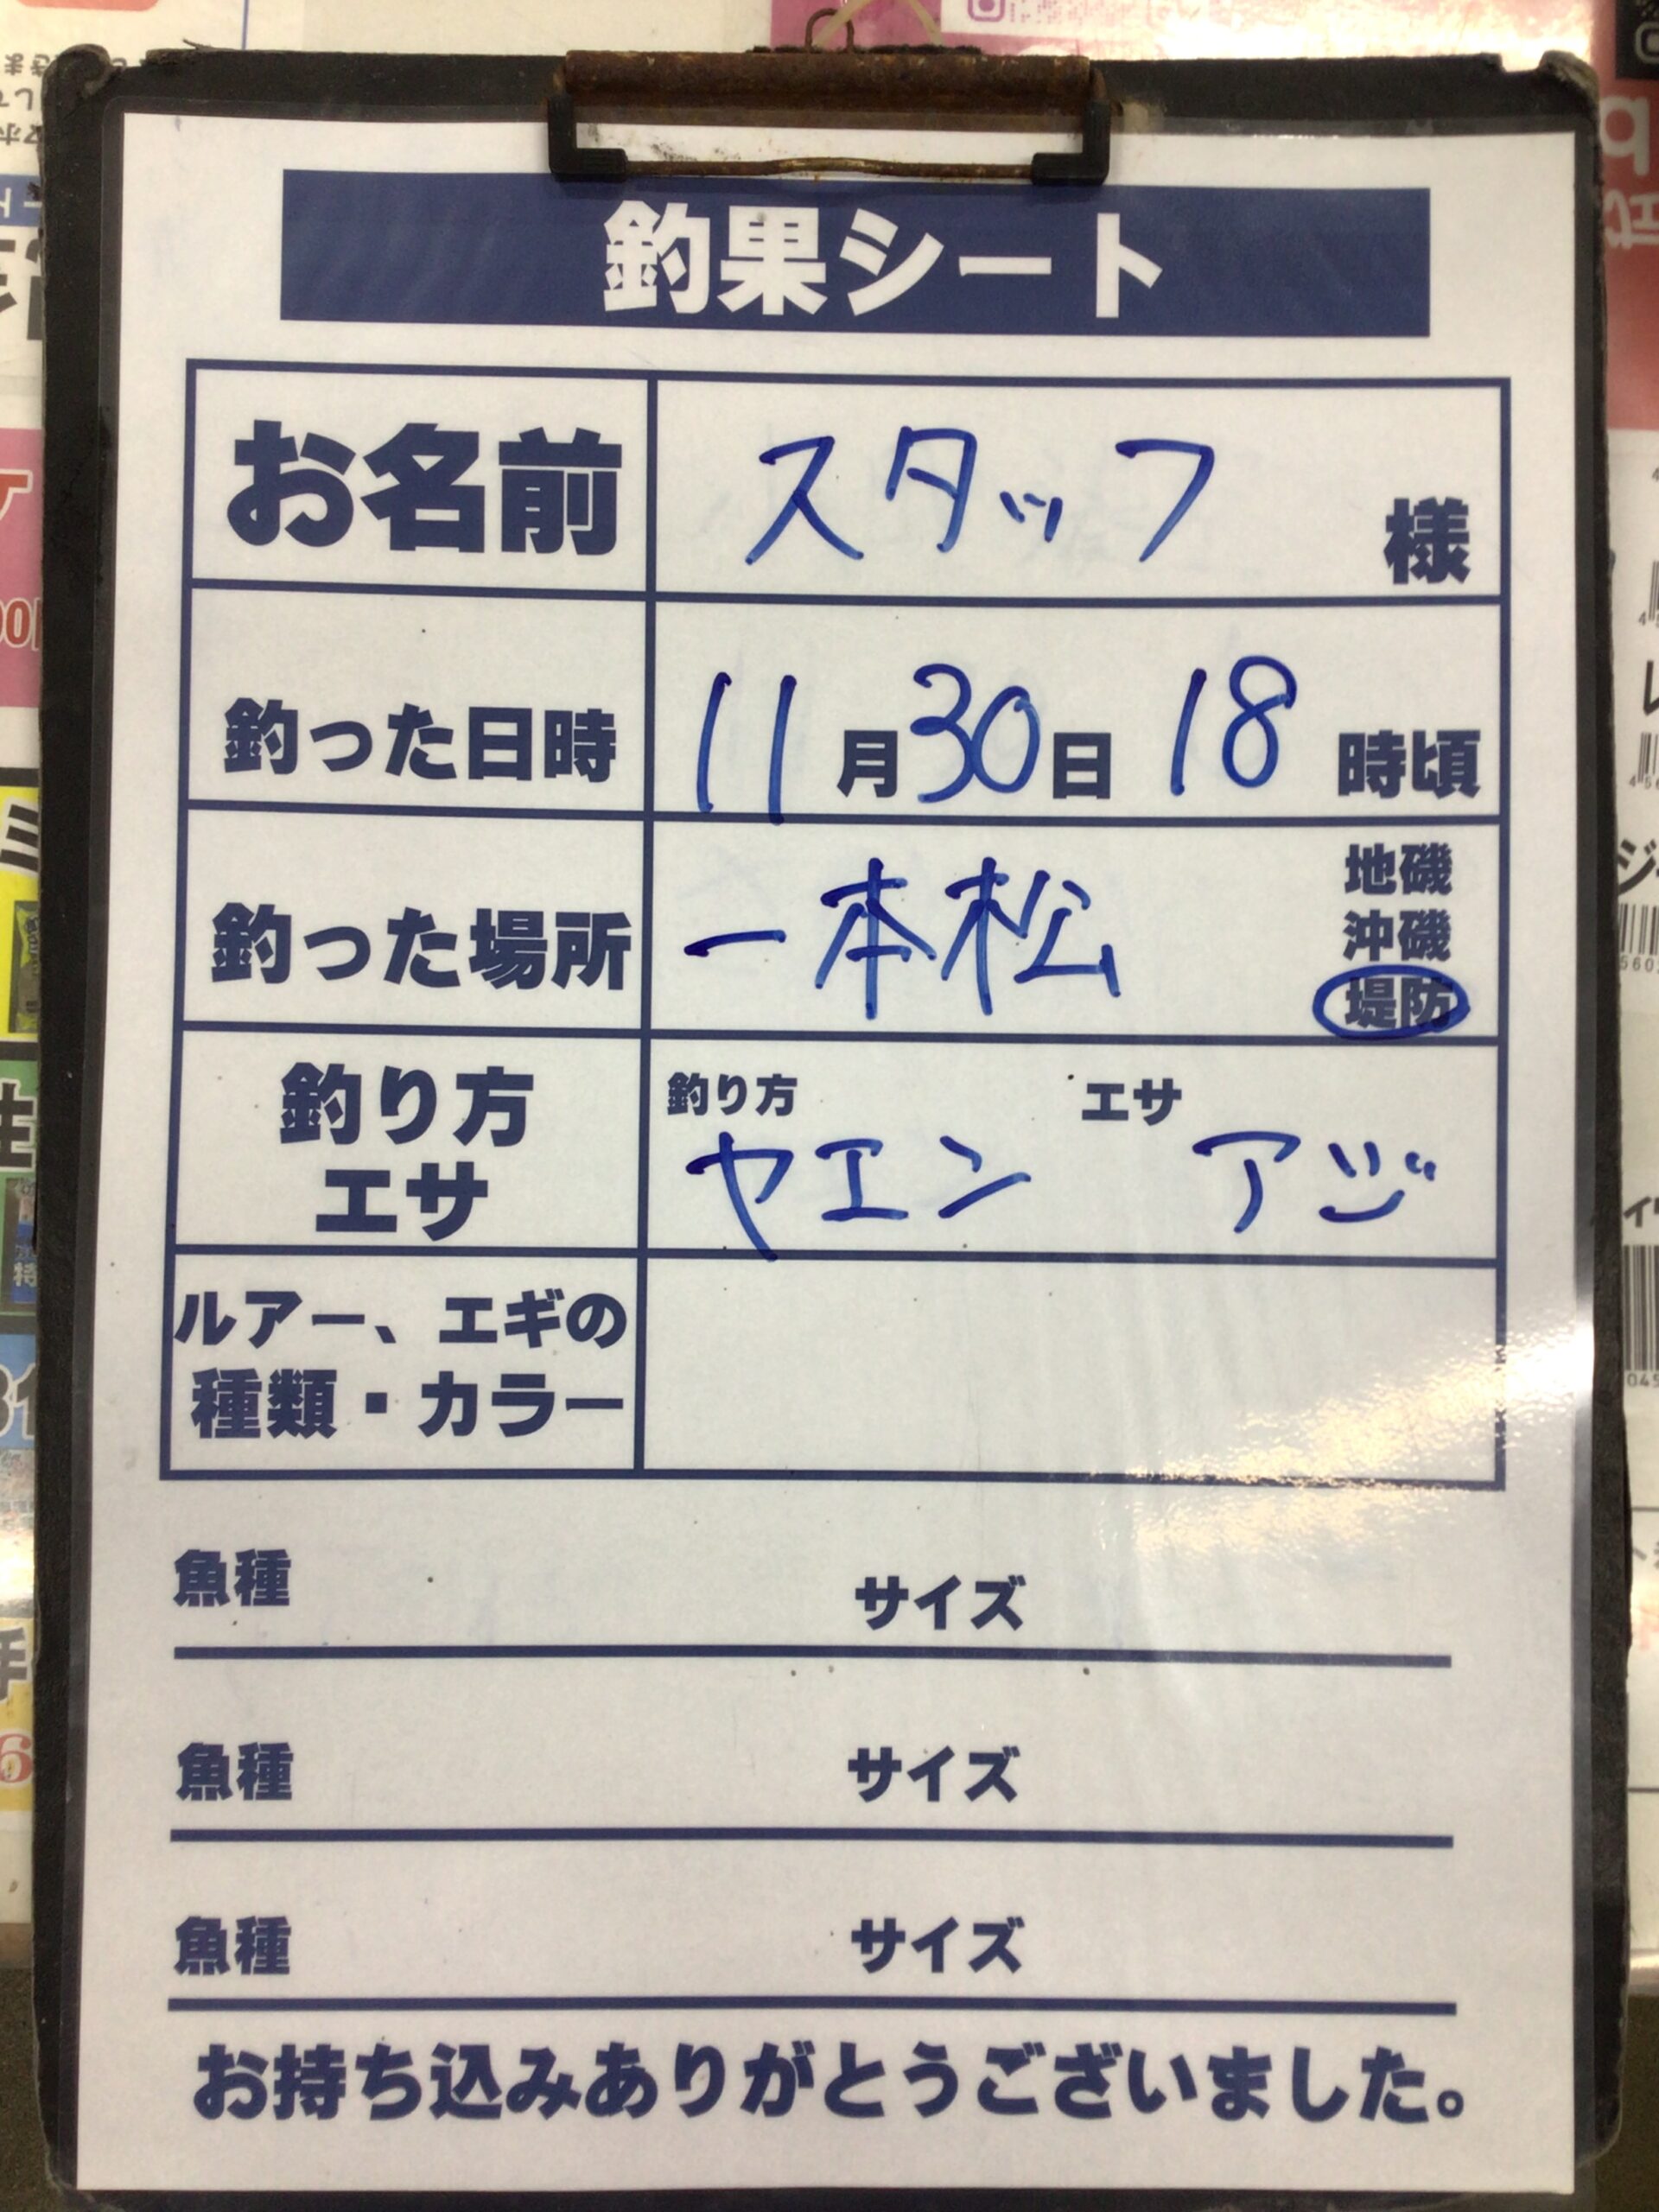 釣果シート
お名前 スタッフ 様
釣った日時 11月30日 18時頃
釣った場所 一本松 地磯
沖磯
堤防
釣り方 エサ
釣り方
エサ
ヤエン アジ
ルアー、エギの
種類・カラー
魚種 サイズ
魚種 サイズ
魚種 サイズ
お持ち込みありがとうございました。